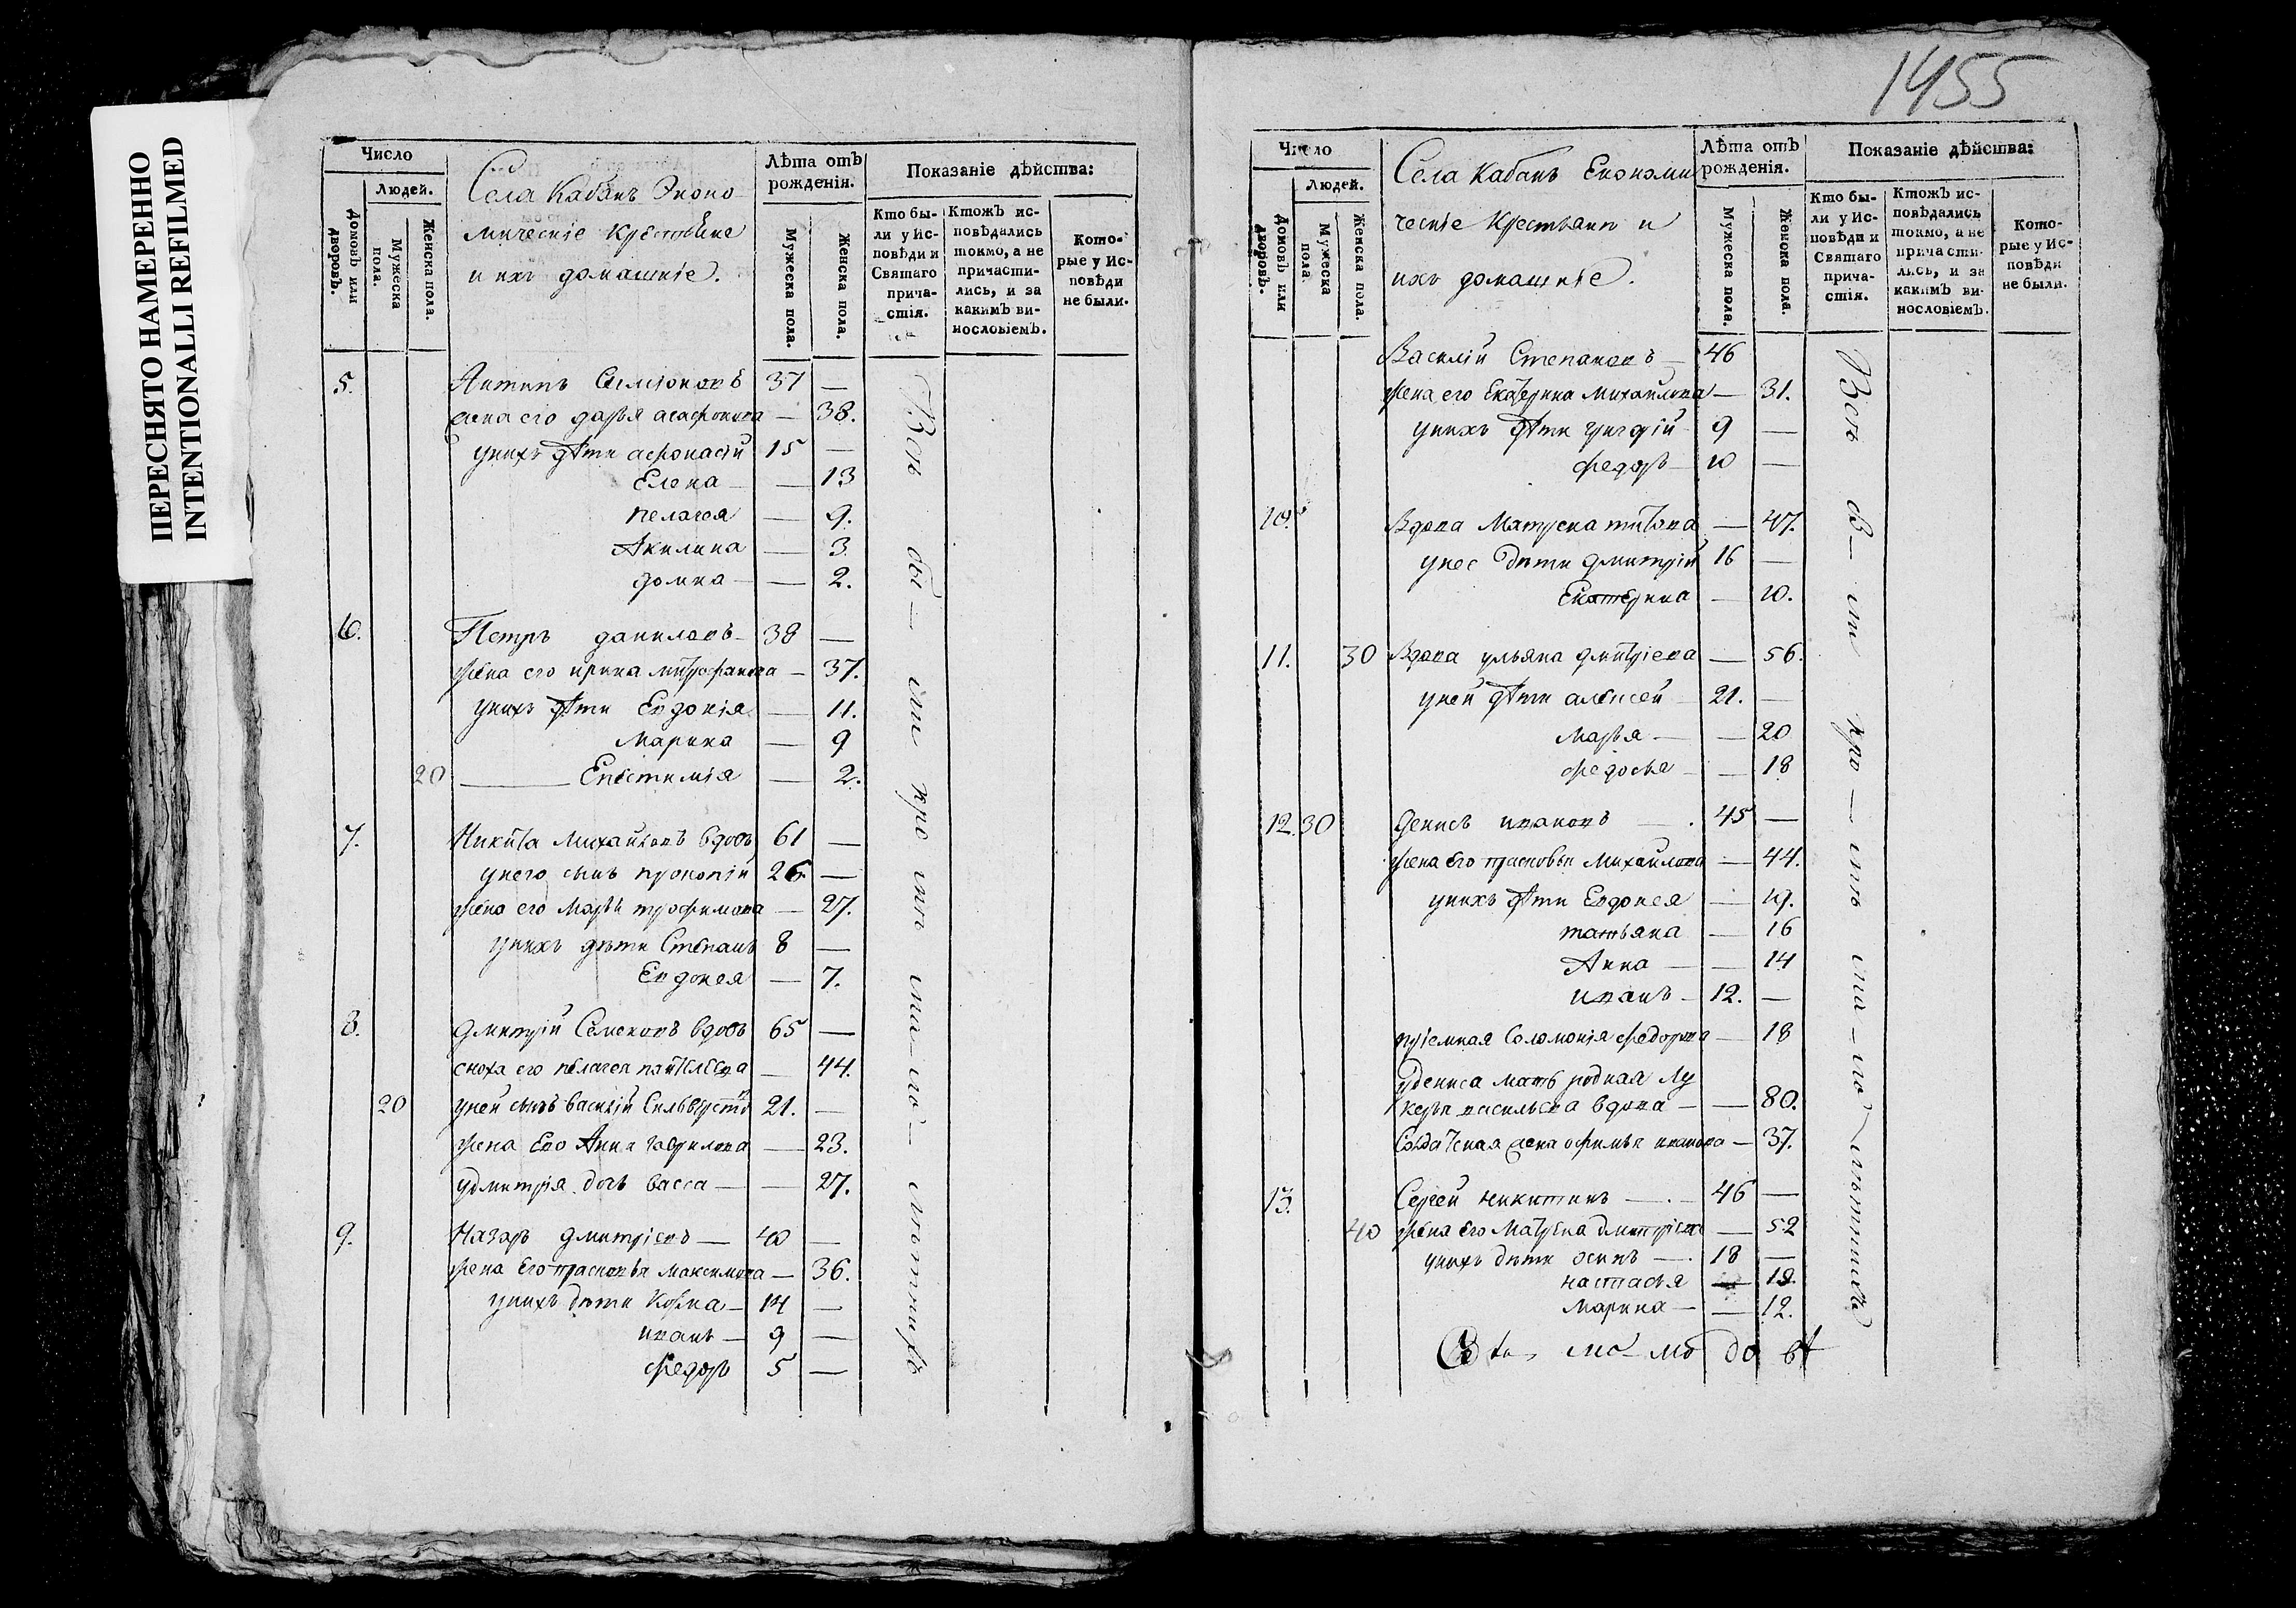 ПЕРЕСНЯТО НАМЕРЕННО
INTENTIONALLI REFILMED
Число
Людей.
Домовъ или дворовъ.
Мужеска пола.
Женска пола.
Села Кабанъ Эконо-
мическіе крестьяне
и ихъ домашніе.
Лѣта отъ рожденія.
Мужеска пола.
Женска пола.
Показаніе дѣйства:
Кто бы-
ли у Ис-
повѣди и
Святаго
прича-
стія.
Ктожъ ис-
повѣдались
токмо, а не
причасти-
лись, и за
какимъ ви-
нословіемъ.
Кото-
рые у Ис-
повѣди
не были.
5. Антипъ Симіоновъ 37 —
жена его дарья агафонова — 38.
у нихъ дѣти афонасій 15 —
Елена — 13
пелагея — 9.
Акилина — 3
домна — 2.
6. Петръ даниловъ 38 —
жена его ирина митрофанова — 37.
у нихъ дѣти Евдокія — 11.
Марина — 9
20 Епистимія — 2.
7. Никита Михайловъ вдовъ 61 —
у него сынъ прокопій 26 —
жена его Марья трофимова — 27.
у нихъ дѣти Степанъ 8 —
Евдокея — 7.
8. дмитрій Семеновъ вдовъ 65 —
сноха его пелагея — 44.
20 у ней сынъ василій 21. —
жена Его Анна гаврилова — 23.
у дмитрія дочь васса — 27.
9. Назаръ дмитріевъ — 40 —
жена Его прасковья максимова — 36.
у нихъ дѣти Козма — 14 —
иванъ — 9 —
федоръ 5 —
Вси бы — ли при свя — то —
1455
Число
Людей.
Домовъ или дворовъ.
Мужеска пола.
Женска пола.
Села Кабанъ Економи
ческіе крестьяне и
ихъ домашніе.
Лѣта отъ рожденія.
Мужеска пола.
Женска пола.
Показаніе дѣйства:
Кто бы-
ли у Ис-
повѣди и
Святаго
прича-
стія.
Ктожъ ис-
повѣдались
токмо, а не
причасти-
лись, и за
какимъ ви-
нословіемъ.
Кото-
рые у Ис-
повѣди
не были.
Василій Степановъ — 46
жена его Екатерина Михайлова — 31.
у нихъ дѣти григорій 9 —
федоръ — 10 —
10. Вдова Матрена титова — 47.
у нее дѣти дмитрій 16 —
Екатерина — 10.
11. 30 Вдова ульяна дмитріева — 56.
у ней дѣти алексей 21. —
Марья — 20
федосья — 18
12. 30 Денисъ ивановъ — 45 —
жена Его прасковья Михайлова — 44.
у нихъ дѣти Евдокея — 19.
татьяна — 16
Анна — 14
иванъ — 12. —
пріемная Соломонія федорова — 18
у дениса мать родная Лу
керья васильева вдова — 80.
Солдатская жена офимья иванова — 37.
13. Сергей никитинъ — 46 —
40 жена Его Матрена дмитріева — 52
у нихъ дѣти осипъ — 18 —
настасья — 18.
Марина — 12.
Вси бы — ли при — свя — то —